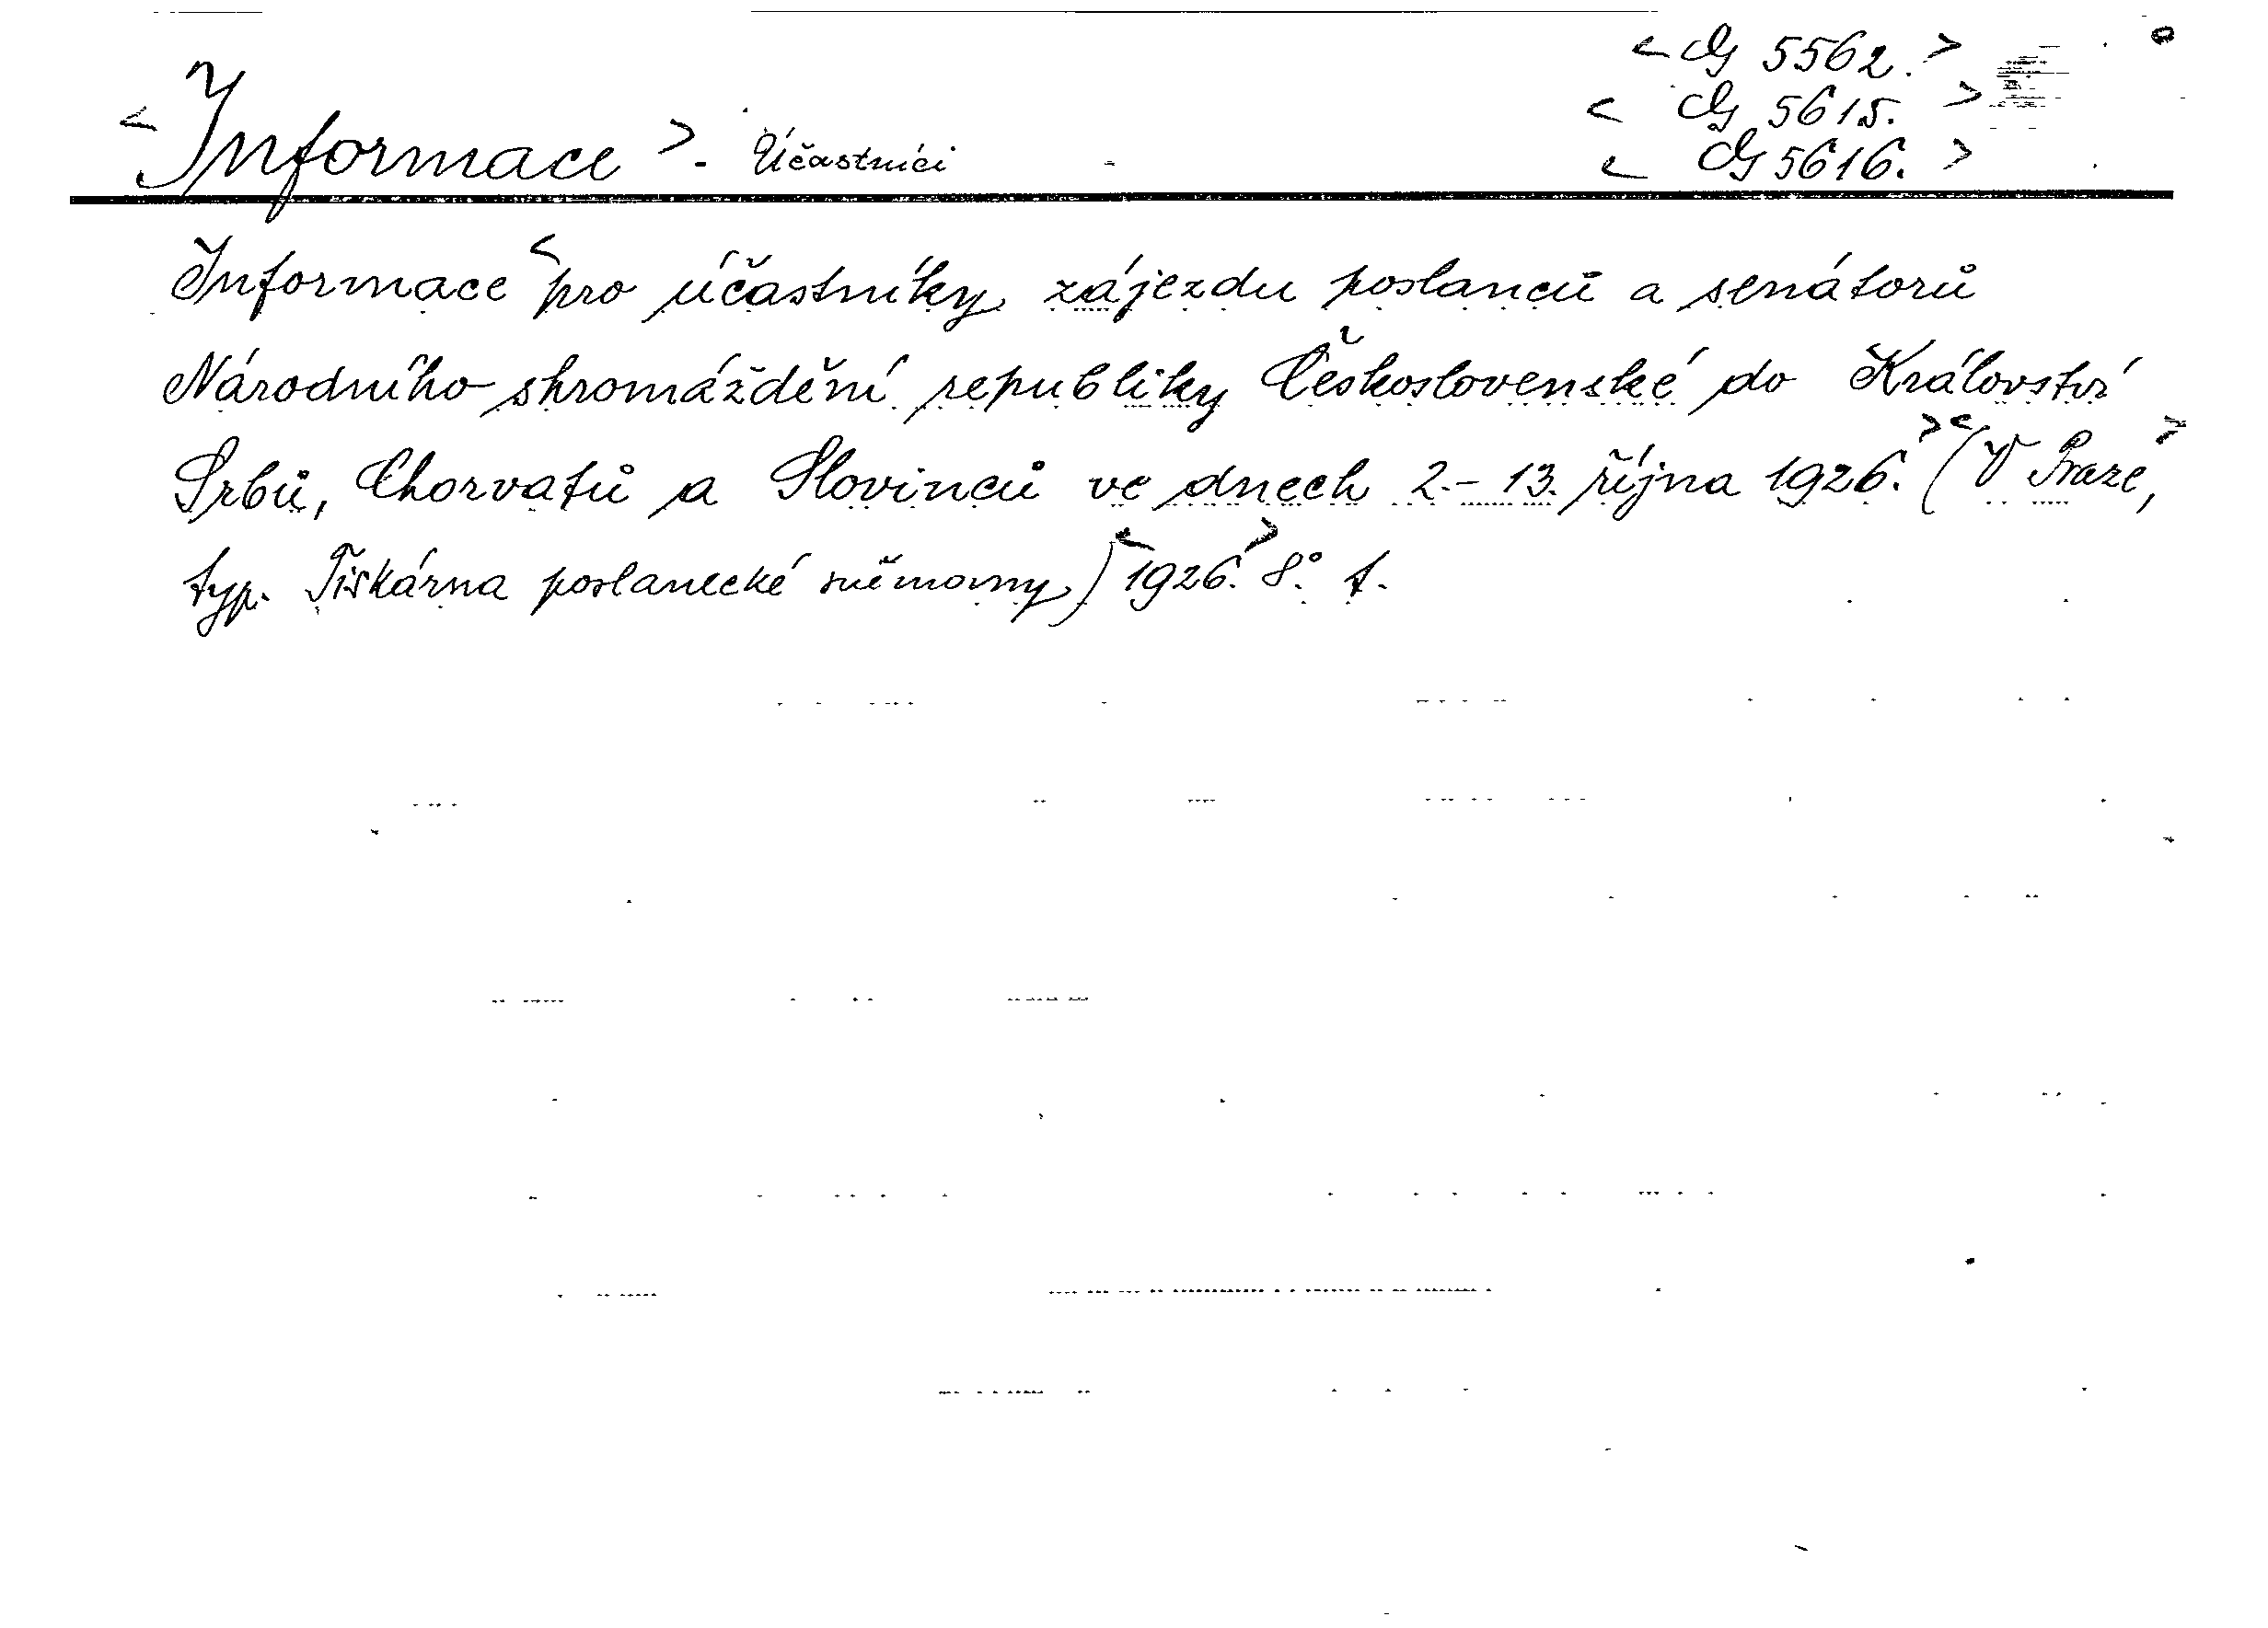 < Cg 5562. >
< Cg 5615. >
< Cg 5616. >
< Informace >. Účastníci
Informace < pro účastníky zájezdu poslanců a senátorů
Národního shromáždění republiky Československé do Království
Srbů, Chorvatů a Slovinců ve dnech 2.-13. října 1926. > < (V Praze, >
typ. Tiskárna poslanecké sněmovny) < 1926. > 8°. f.